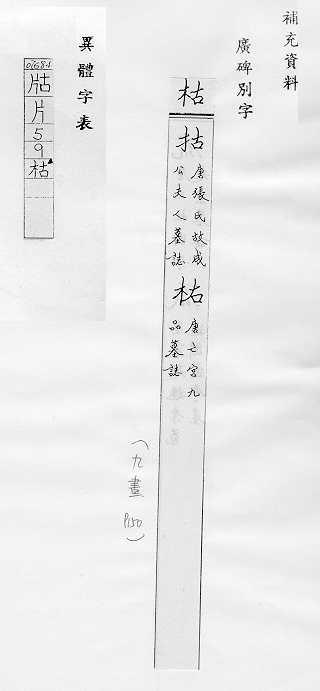 補充資料
廣碑別字
枯
唐張氏故成
公夫人墓誌
唐亡宮九
品墓誌
(九畫 P150)
異體字表
片
5
9
枯